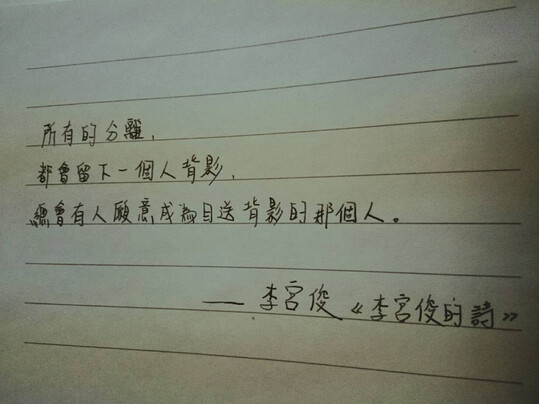 所有的分離,
都會留下一個人背影,
總會有人願意成為目送背影的那個人。
── 李宮俊《李宮俊的詩》